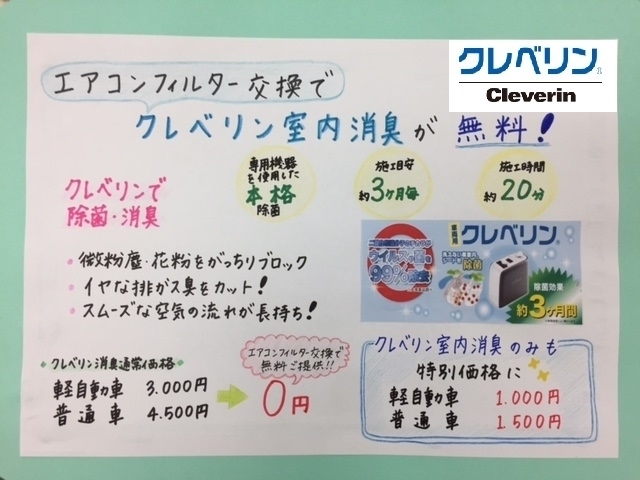 クレベリン
Cleverin
エアコンフィルター交換で
クレベリン室内消臭が 無料!
クレベリンで
除菌・消臭
専用機器
を使用した
本格
除菌
施工目安
約3ヶ月毎
施工時間
約20分
・微粉塵・花粉をがっちりブロック
・イヤな排ガス臭をカット!
・スムーズな空気の流れが長持ち!
車両用
クレベリン
ウイルス・菌
99%
除菌
除菌効果
約3ヶ月間
クレベリン消臭通常価格
軽自動車 3.000円
普通車 4.500円
エアコンフィルター交換で
無料ご提供!!
0円
クレベリン室内消臭のみも
特別価格に
軽自動車 1.000円
普通車 1500円